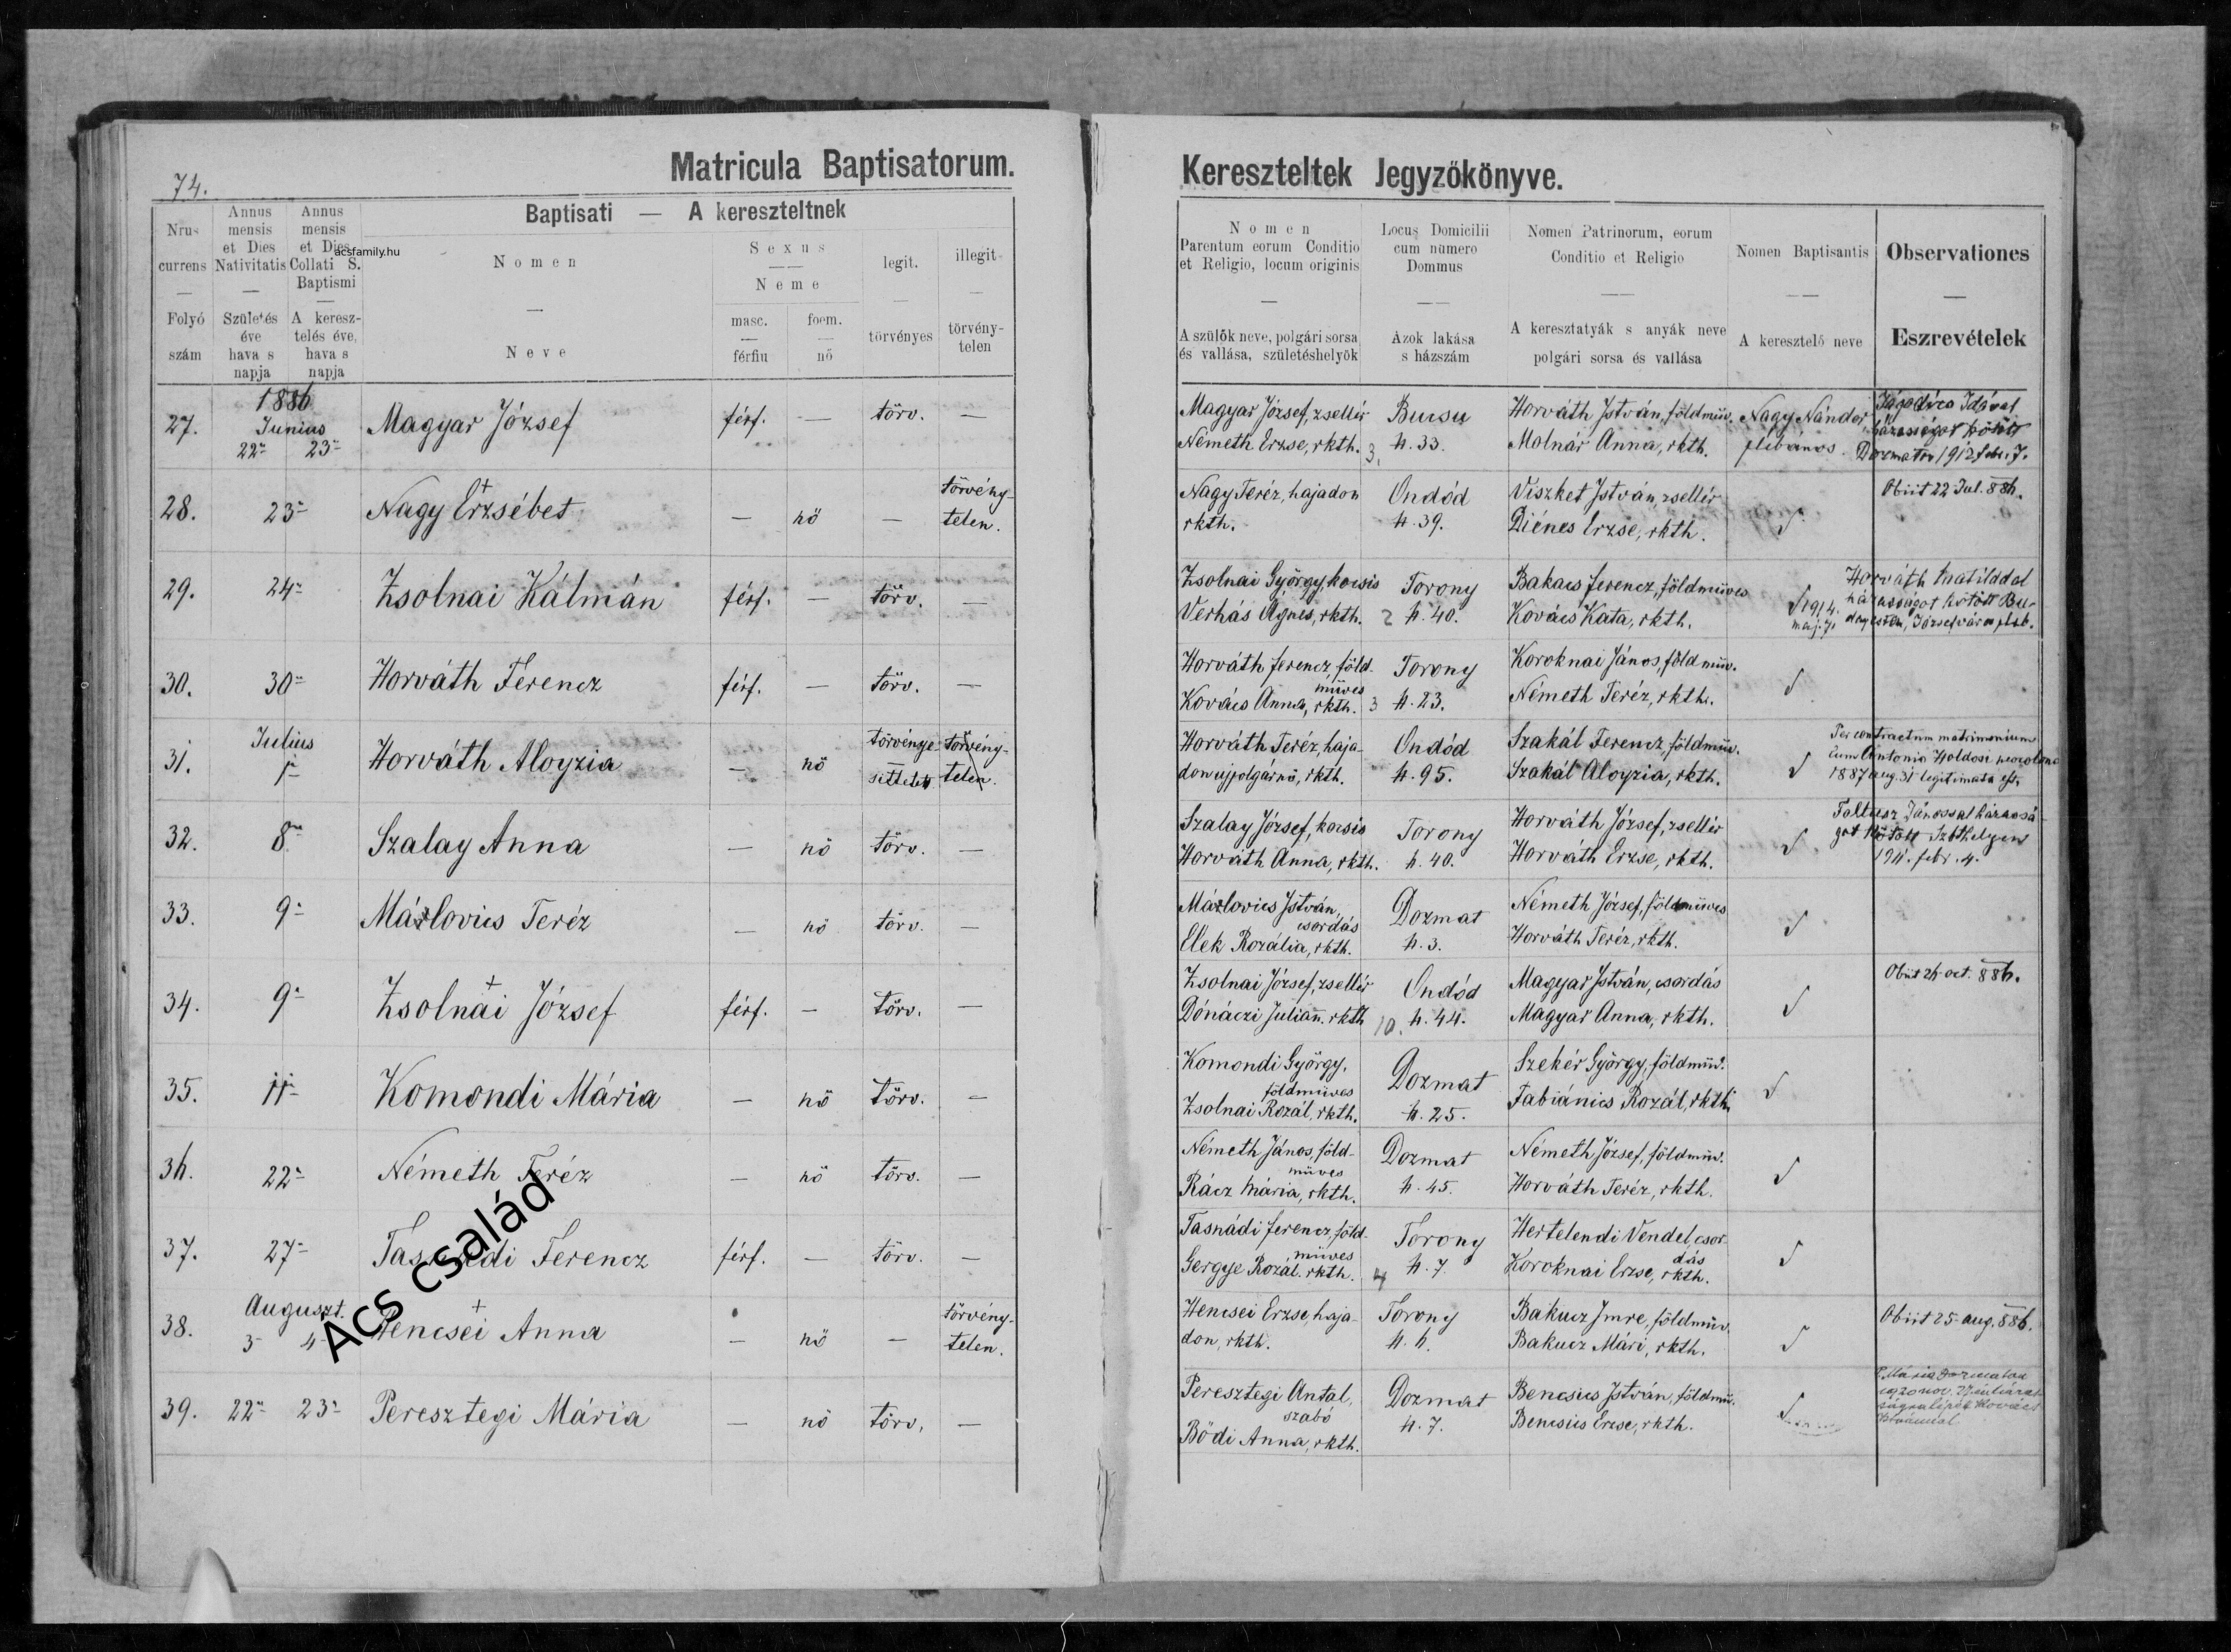 74.
Matricula Baptisatorum.
Nrus
currens
—
Folyó
szám
Annus
mensis
et Dies
Nativitatis
—
Születés
éve
hava s
napja
Annus
mensis
et Dies
Collati S.
Baptismi
—
A keresz-
telés éve,
hava s
napja
acsfamily.hu
Baptisati — A kereszteltnek
Nomen
—
Neve
Sexus
——
Neme
masc.
—
férfiu
foem.
—
nő
legit.
—
törvényes
illegit.
—
törvény-
telen
1886
27. Junius
22n 23n Magyar József férf. — törv. —
28. 23n Nagy Erzsébet + — nő — törvény-
telen.
29. 24n Zsolnai Kálmán férf. — törv. —
30. 30n Horváth Ferencz férf. — törv. —
31. Julius
1n Horváth Aloyzia — nő törvénye-
sittetett törvény-
telen.
32. 8n Szalay Anna — nő törv. —
33. 9n Márlovics Teréz — nő törv. —
34. 9n Zsolnai József + férf. — törv. —
35. 11n Komondi Mária — nő törv. —
36. 22n Németh Teréz — nő törv. —
37. 27n Tasnádi Ferencz férf. — törv. —
38. Auguszt.
3n 4n Hencsei Anna + — nő — törvény-
telen.
39. 22n 23n Peresztegi Mária — nő törv. —
Ács család
Kereszteltek Jegyzőkönyve.
Nomen
Parentum eorum Conditio
et Religio, locum originis
—
A szülők neve, polgári sorsa
és vallása, születéshelyök
Locus Domicilii
cum numero
Dommus
——
Azok lakása
s házszám
Nomen Patrinorum, eorum
Conditio et Religio
——
A keresztatyák s anyák neve
polgári sorsa és vallása
Nomen Baptisantis
——
A keresztelő neve
Observationes
—
Eszrevételek
Magyar József, zsellér
Németh Erzse, rkth. 3.
Bucsu
h. 33.
Horváth István, földmüv.
Molnár Anna, rkth.
Nagy Nándor,
plébános.
Idával
házasságot kötött
Dozmaton 1912 febr. 7.
Nagy Teréz, hajadon
rkth.
Ondód
h. 39.
Viszket István, zsellér
Diénes Erzse, rkth.
Obiit 22 Jul. 886.
Zsolnai György, kocsis
Verhás Ágnes, rkth. 2
Torony
h. 40.
Bakacs Ferencz, földmüves
Kovács Kata, rkth.
1914.
maj. 7.
Horváth Matilddal
házasságot kötött Bu-
dapesten, Józsefváros pleb.
Horváth Ferencz, föld-
müves
Kovács Anna, rkth. 3
Torony
h. 23.
Koroknai János, földmüv.
Németh Teréz, rkth.
Horváth Teréz, haja-
don ujpolgárnő, rkth.
Ondód
h. 95.
Szakál Ferencz, földmüv.
Szakál Aloyzia, rkth.
Per contractum matrimonium
cum Antonio Holdosi
1887 aug. 31 legitimata est.
Szalay József, kocsis
Horváth Anna, rkth.
Torony
h. 40.
Horváth József, zsellér
Horváth Erzse, rkth.
Jánossal házassá-
got kötött Szbthelyen
febr. 4.
Márlovics István,
csordás
Elek Rozália, rkth.
Dozmat
h. 3.
Németh József, földmüves
Horváth Teréz, rkth.
Zsolnai József, zsellér
Dónáczi Juliann. rkth 10.
Ondód
h. 44.
Magyar István, csordás
Magyar Anna, rkth.
Obiit 26 oct. 886.
Komondi György,
földmüves
Zsolnai Rozál, rkth.
Dozmat
h. 25.
Szekér György, földmüv.
Fabiánics Rozál, rkth.
Németh János, föld-
müves
Rácz Mária, rkth.
Dozmat
h. 45.
Németh József, földmüv.
Horváth Teréz, rkth.
Tasnádi Ferencz, föld-
müves
Gergye Rozál. rkth. 4
Torony
h. 7.
Hertelendi Vendel, csor-
dás
Koroknai Erzse, rkth.
Hencsei Erzse, haja-
don, rkth.
Torony
h. 6.
Bakucz Imre, földmüv.
Bakucz Mári, rkth.
Obiit 25 aug. 886.
Peresztegi Antal,
szabó
Bödi Anna, rkth.
Dozmat
h. 7.
Bencsics István, földmüv.
Bencsics Erzse, rkth.
P. Mária Dozmaton
1920 nov. 27
Kovács
Istvánnal